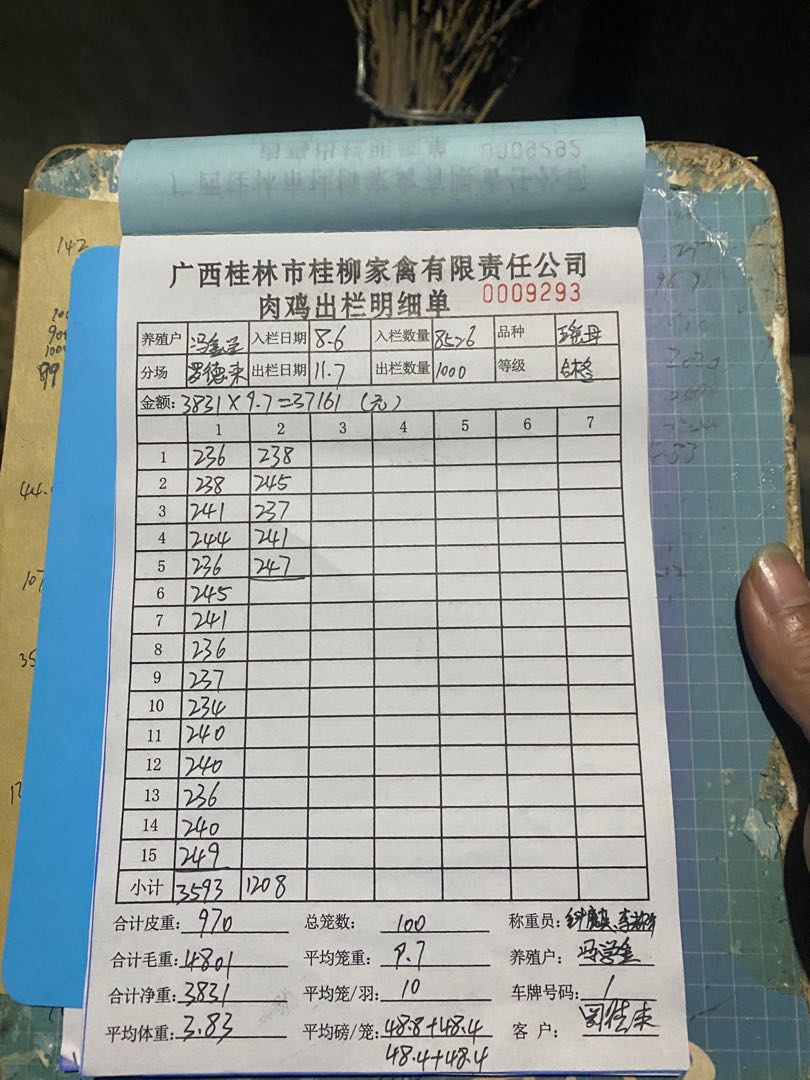 肉鸡出栏明细单 0009292
广西桂林市桂柳家禽有限责任公司
142
广西桂林市桂柳家禽有限责任公司
肉鸡出栏明细单 0009293
养殖户 入栏日期 8.6 入栏数量 8526 品种
分场 罗德来 出栏日期 11.7 出栏数量 1000 等级 合格
金额: 3831×9.7=37161 (元)
1 2 3 4 5 6 7
1 236 238
2 238 245
3 241 237
4 244 241
5 236 247
6 245
7 241
8 236
9 237
10 234
11 240
12 240
13 236
14 240
15 249
小计 3593 1208
合计皮重: 970 总笼数: 100 称重员:
合计毛重: 4801 平均笼重: 9.7 养殖户: 冯学金
合计净重: 3831 平均笼/羽: 10 车牌号码: 1
平均体重: 3.83 平均磅/笼: 48.8+48.4 客 户:
48.4+48.4